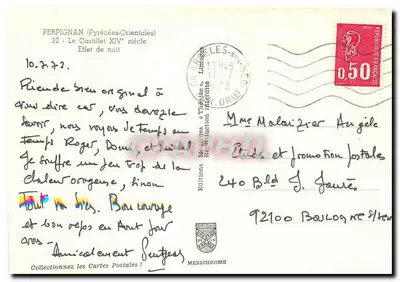 PERPIGNAN (Pyrénées-Orientales)
52 - Le Castillet XIVe siècle
Effet de nuit
10.7.72.
Rien de bien original à
vous dire car, vous devez le
savoir, nous voyons de temps en
temps Roger, Dom, et Michel
Je souffre un peu trop de la
chaleur orageuse, sinon
Tout va bien. Bon courage
et bon repos en Août pour
vous - Amicalement
Collectionnez les Cartes Postales !
Editions
Reproduction Interdite
MEXICHROME
ARGELES-sur-
13H45
11-7
POSTES
REPUBLIQUE FRANÇAISE
0,50
Mme Angèle
et promotion postales
240 Bld J. Jaurès
92100 BOULOGNE s/